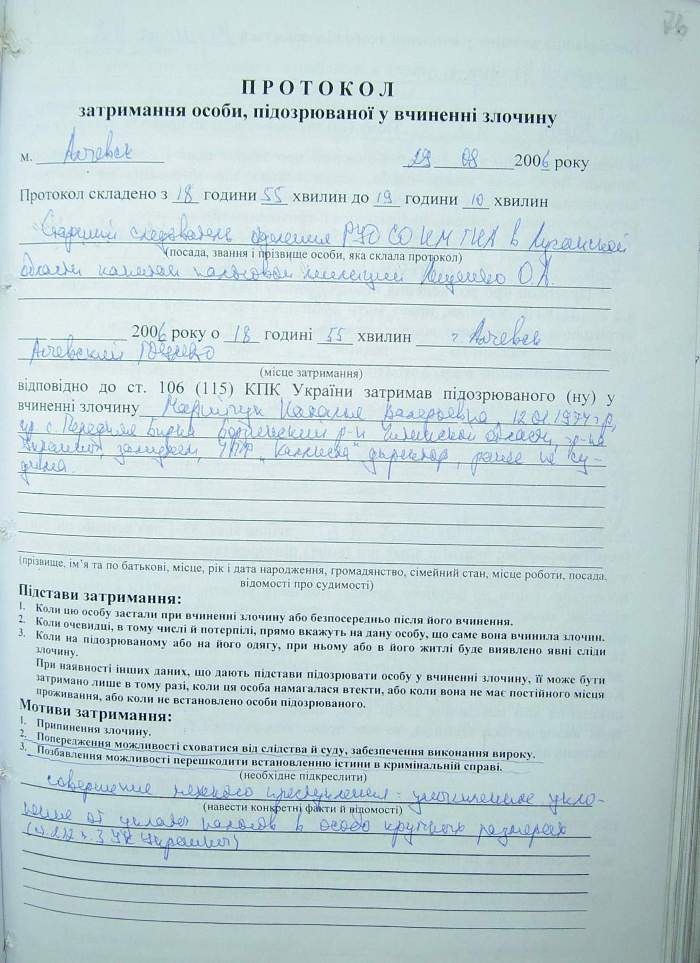 ПРОТОКОЛ
затримання особи, підозрюваної у вчиненні злочину
м. Алчевск 29 08 2006 року
Протокол складено з 18 години 55 хвилин до 19 години 10 хвилин
Старший следователь отделения СО в Луганской
(посада, звання і прізвище особи, яка склала протокол)
области капитан налоговой милиции О.А.
2006 року о 18 годині 55 хвилин г. Алчевск
Алчевский
(місце затримання)
відповідно до ст. 106 (115) КПК України затримав підозрюваного (ну) у
вчиненні злочину Наталья Валерьевна, 12.01.1974 г.р,
ур. с. р-н области, гр-ка
Украины, замужем, директор, ранее не су-
дима.
(прізвище, ім’я та по батькові, місце, рік і дата народження, громадянство, сімейний стан, місце роботи, посада,
відомості про судимості)
Підстави затримання:
1. Коли цю особу застали при вчиненні злочину або безпосередньо після його вчинення.
2. Коли очевидці, в тому числі й потерпілі, прямо вкажуть на дану особу, що саме вона вчинила злочин.
3. Коли на підозрюваному або на його одягу, при ньому або в його житлі буде виявлено явні сліди
злочину.
При наявності інших даних, що дають підстави підозрювати особу у вчиненні злочину, її може бути
затримано лише в тому разі, коли ця особа намагалася втекти, або коли вона не має постійного місця
проживання, або коли не встановлено особи підозрюваного.
Мотиви затримання:
1. Припинення злочину.
2. Попередження можливості сховатися від слідства й суду, забезпечення виконання вироку.
3. Позбавлення можливості перешкодити встановленню істини в кримінальній справі.
(необхідне підкреслити)
совершение тяжкого преступления: умышленное укло-
(навести конкретні факти й відомості)
нение от уплаты налогов в особо крупных размерах
(ст. 212 ч. 3 УК Украины)